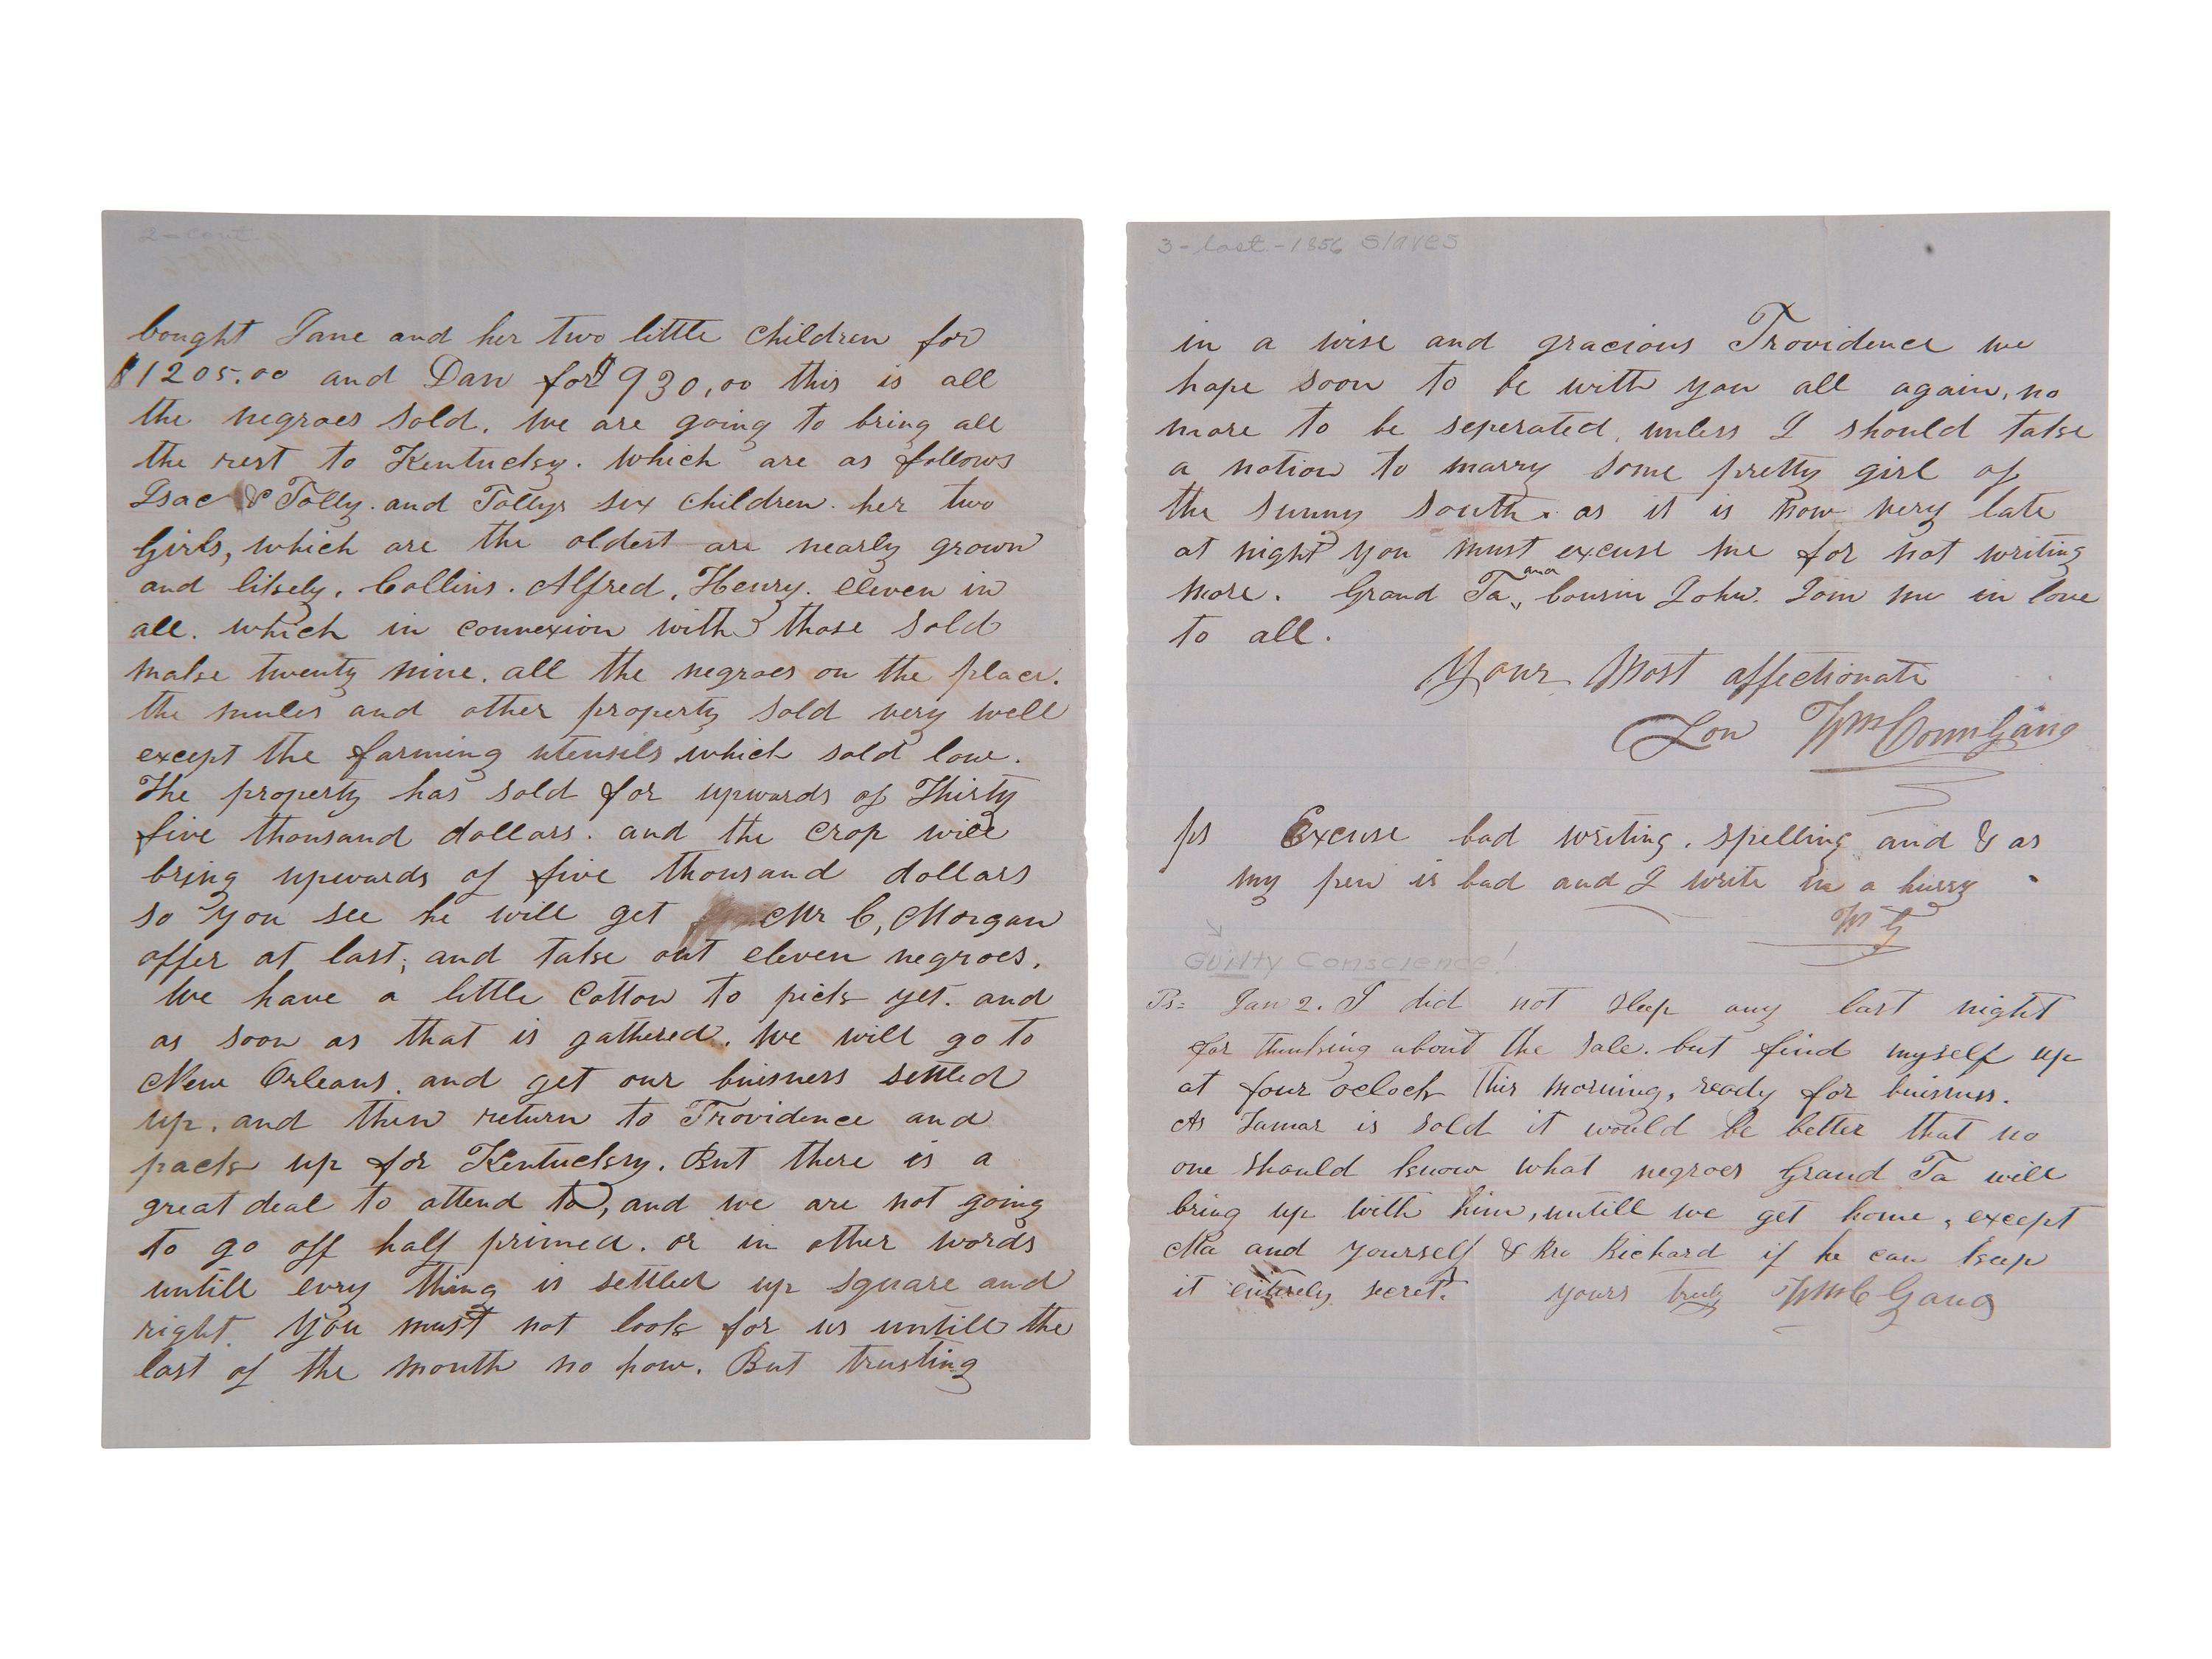 2-cont.
bought Jane and her two little children for
$1205.00 and Dan for $930,00 this is all
the negroes sold. We are going to bring all
the rest to Kentucky. Which are as follows
Isac & Polly. and Pollys six children. her two
Girls, which are the oldest are nearly grown
and likely. Collins. Alfred, Henry. eleven in
all. which in connexion with those sold
make twenty nine. all the negroes on the place.
the mules and other property sold very well
except the farming utensils which sold low.
The property has sold for upwards of Thirty
five thousand dollars. and the crop will
bring upwards of five thousand dollars
so you see he will get Mr C, Morgan
offer at last; and take out eleven negroes.
We have a little Cotton to pick yet. and
as soon as that is gathered. We will go to
New Orleans. and get our buisness settled
up. and then return to Providence and
pack up for Kentucky. But there is a
great deal to attend to, and we are not going
to go off half primed. or in other words
untill evry thing is settled up square and
right. You must not look for us untill the
last of the month no how. But trusting
3-last.-1856 Slaves
in a wise and gracious Providence we
hope soon to be with you all again, no
more to be seperated, unless I should take
a notion to marry some pretty girl of
the sunny south. as it is now very late
at night you must excuse me for not writing
more. Grand Pa, and Cousin John. Join me in love
to all.
Your Most affectionate
Son Wm Conn Gano
ps Excuse bad writing. spelling and & as
my pen is bad and I write in a hurry
W G
Guilty Conscience!
Ps= Jan 2. I did not sleep any last night
for thinking about the sale. but find myself up
at four oclock this morning, ready for buisness.
As Tamar is sold it would be better that no
one should know what negroes Grand Pa will
bring up with him, untill we get home, except
Ma and yourself & Bro Richard if he can keep
it entirely secret. yours truly Wm C Gano